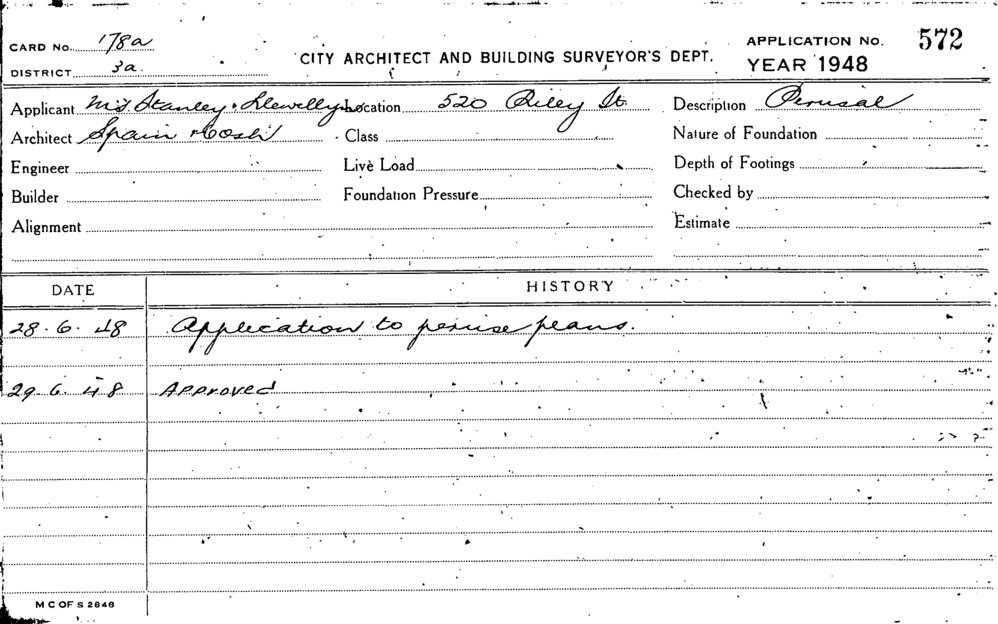 CARD No. 178a
CITY ARCHITECT AND BUILDING SURVEYOR'S DEPT.
APPLICATION No. 572
DISTRICT 3a.
YEAR 1948
Applicant Stanley & Llewellyn Location 520 Riley St. Description Perusal
Architect Spain & Cosh Class Nature of Foundation
Engineer Live Load Depth of Footings
Builder Foundation Pressure Checked by
Alignment Estimate
DATE HISTORY
28.6.48 Application to peruse plans.
29.6.48 Approved
M C OF S 2848